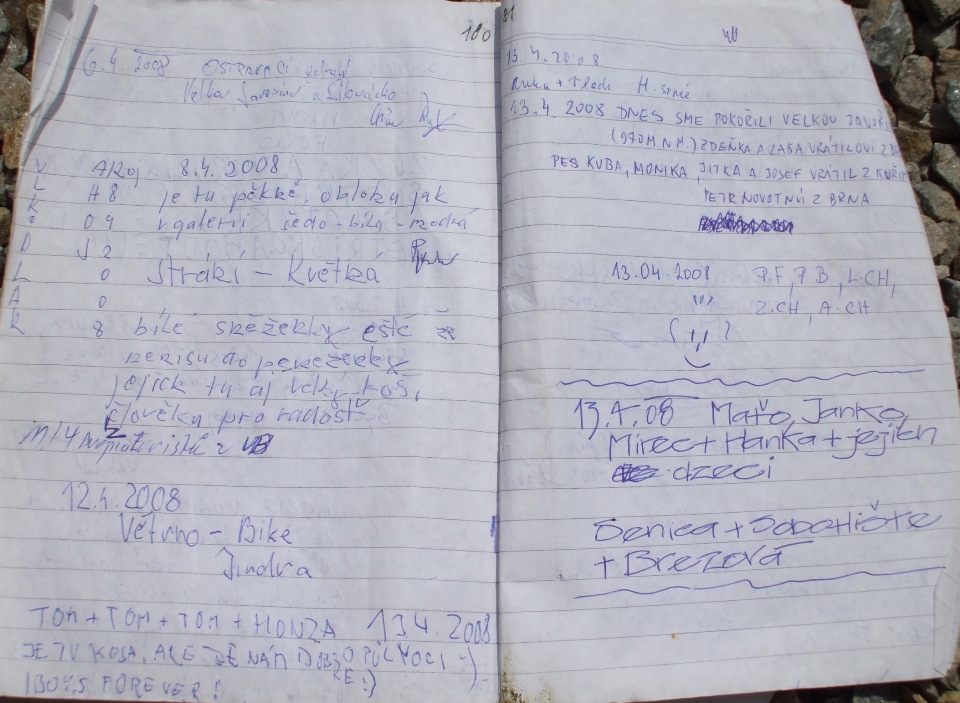 180
6.4. 2008 OSTRAVACI zdraví
Velkou Javorinu a Slovácko
8.4. 2008
VLKODLAK
je tu pěkně, obloha jak
v galerii šedo-bílá-modrá
Strání - Květná
bílé sněženky eště že
nerisu do peněženky
jejich tu aj velký koš,
člověku pro radost
12.4.2008
Větrno - Bike
Jindra
TOM + TOM + TOM + HONZA 13.4.2008
JE TU KOSA, ALE JE NÁM DOBŘE O PŮLNOCI :-)
BOYS FOREVER! :)
81
13.4.2008
13.4. 2008 DNES SME POKOŘILI VELKOU JAVOŘ
(970M N M.) ZDEŇKA A LAĎA VRÁTILOVI Z
PES KUBA, MONIKA, JITKA A JOSEF VRÁTIL Z KUŘIM
PETR NOVOTNÝ Z BRNA
13.04 2008 P.F, P B, L.CH,
Z.CH, A.CH
13.4.08 Maťo, Janko,
Mirec + Hanka + jejich
dzeci
Senica + Sobotište
+ Brezová